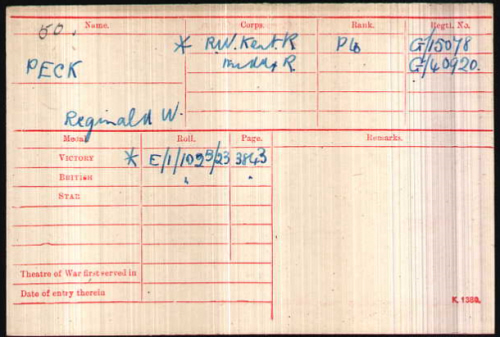 50.
Name. Corps. Rank. Regtl. No.
* R.W. Kent. R Pte G/15078
PECK Midd'x R. G/40920.
Reginald W.
Medal. Roll. Page. Remarks.
VICTORY * E/1/102B/23 3843
BRITISH " "
STAR
Theatre of War first served in
Date of entry therein
K. 1380.